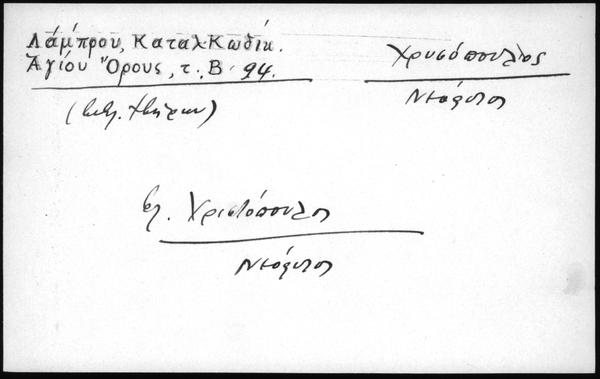 Λάμπρου, Καταλ. Κωδίκ.
Ἁγίου Ὄρους, τ. Β΄ 94.
Χρυσόπουλος
Νεόφυτος
βλ. Χριστόπουλος
Νεόφυτος